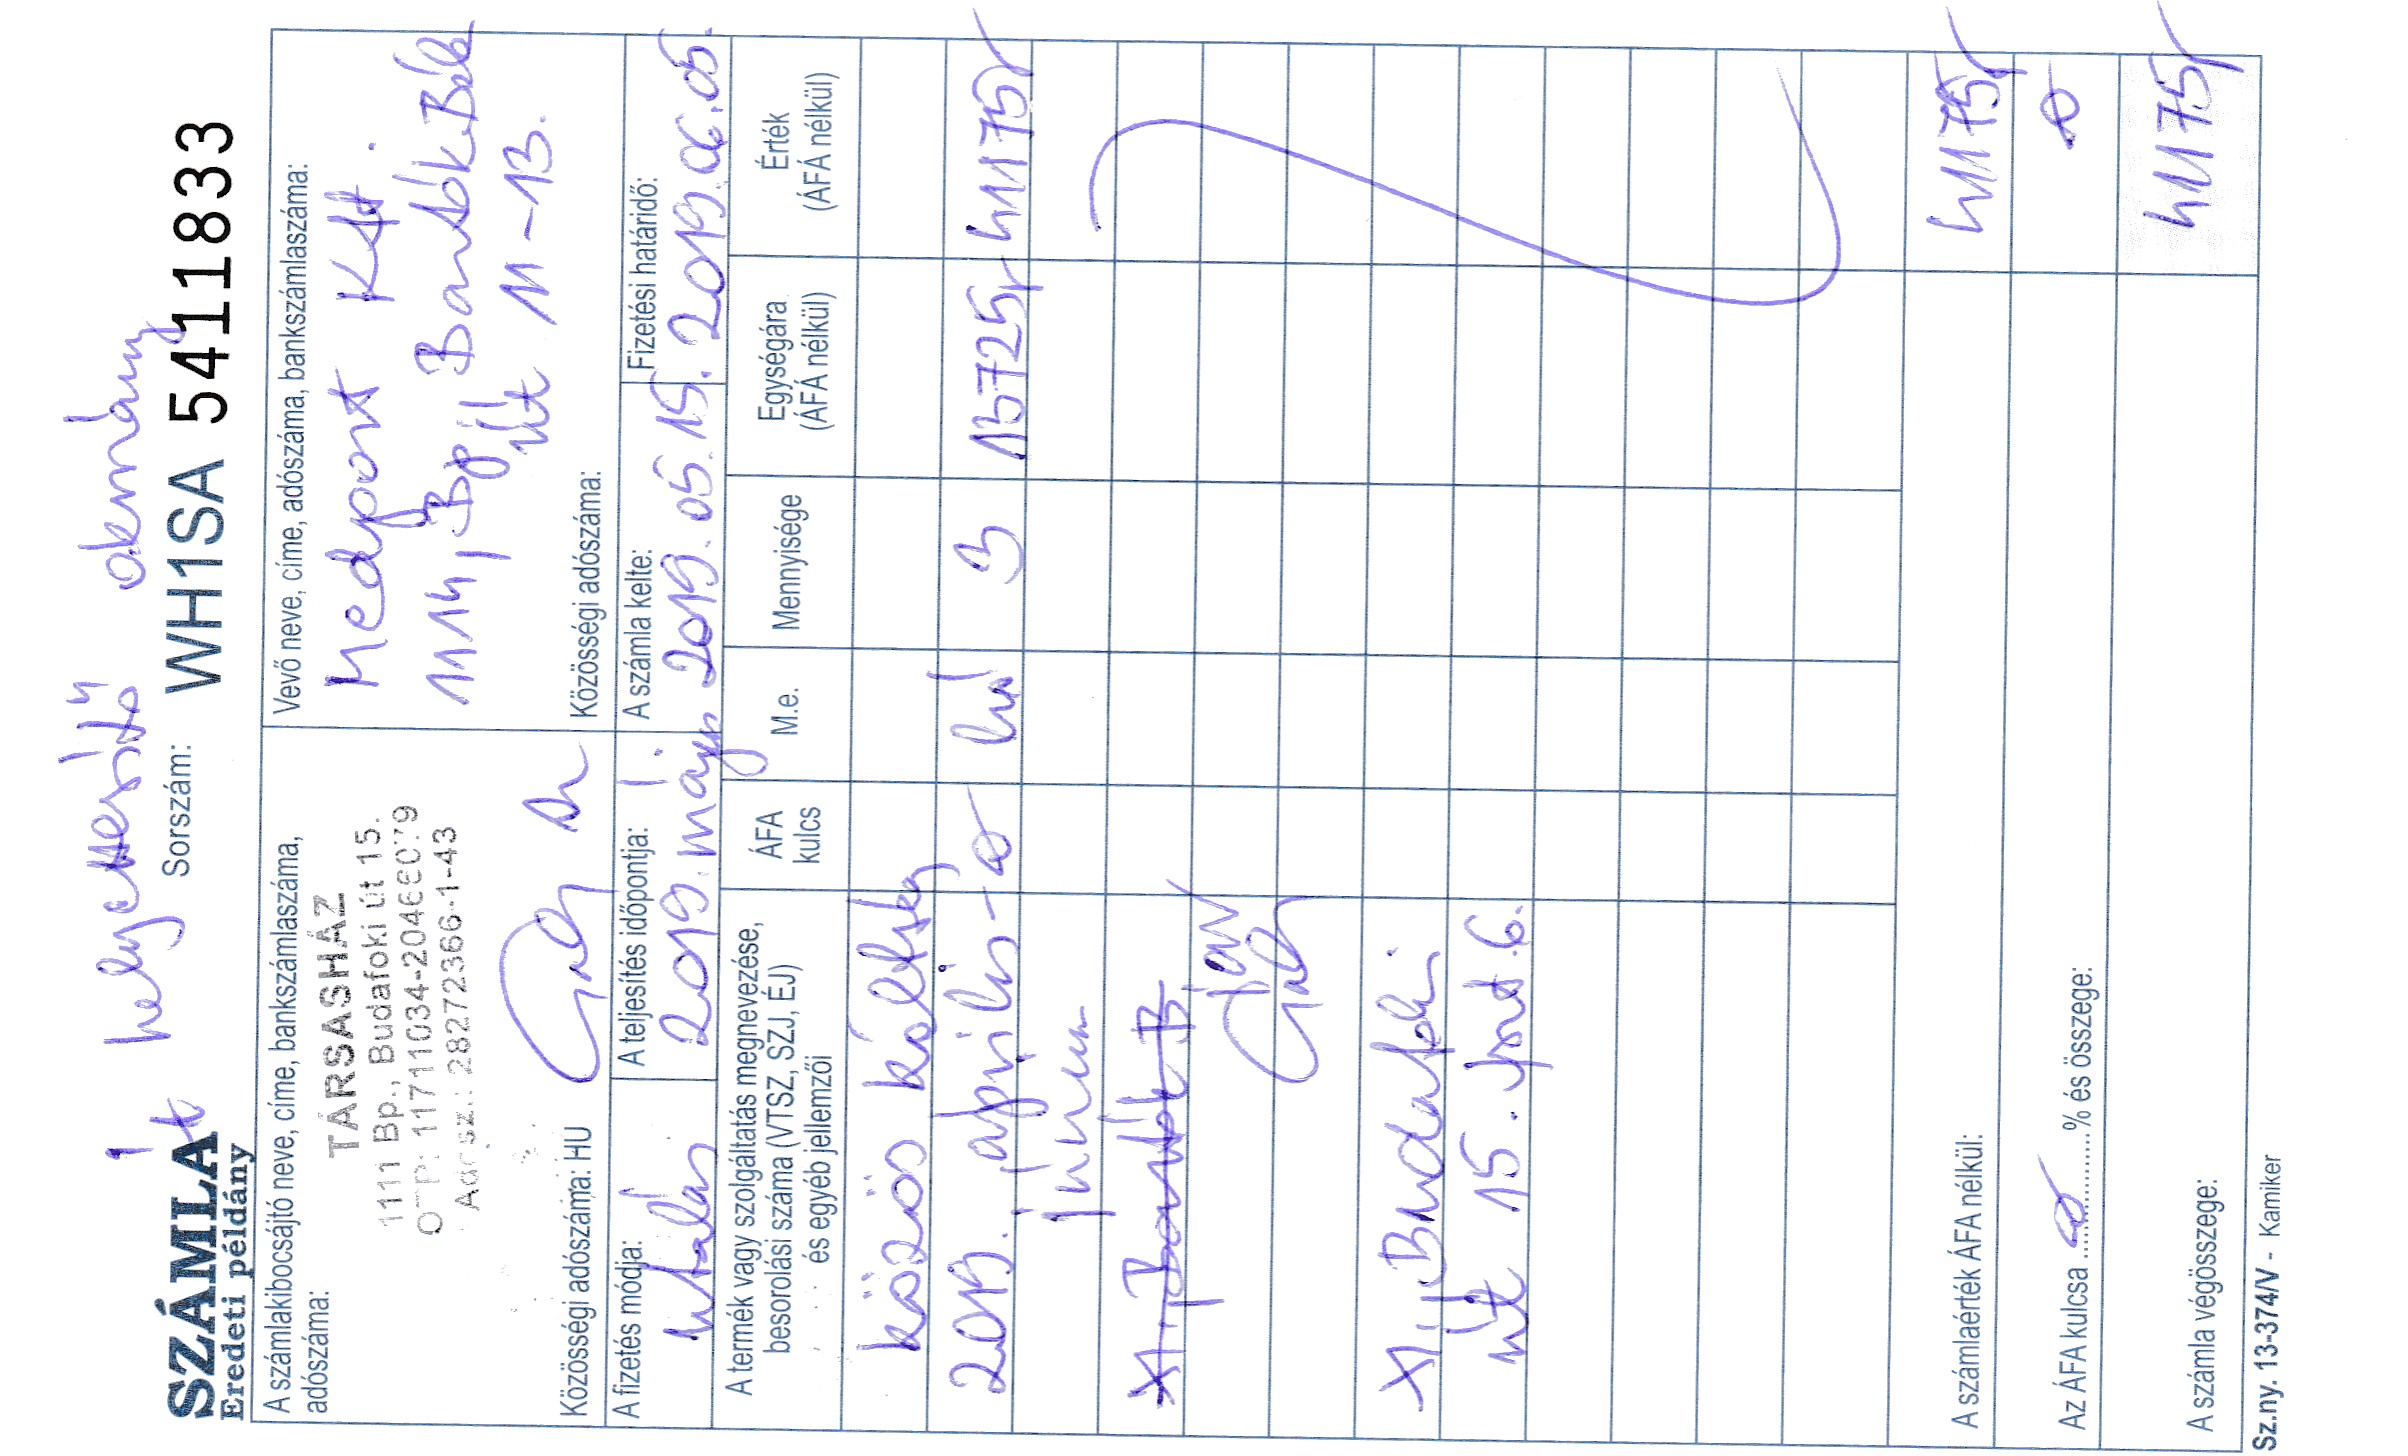 át helyettesítő okmány
SZÁMLA
Eredeti példány
Sorszám: WH1SA 5411833
A számlakibocsájtó neve, címe, bankszámlaszáma,
adószáma:
TÁRSASHÁZ
1111 Bp., Budafoki út 15.
11711034-
28272366-1-43
Közösségi adószáma: HU
Vevő neve, címe, adószáma, bankszámlaszáma:
Medport Kft.
1114, Bp., Bartók Béla
út 11-13.
Közösségi adószáma:
A fizetés módja:
utalás
A teljesítés időpontja:
2019. május
A számla kelte:
2019.05.15.
Fizetési határidő:
2019.06.05.
A termék vagy szolgáltatás megnevezése,
besorolási száma (VTSZ, SZJ, ÉJ)
és egyéb jellemzői
ÁFA
kulcs
M.e.
Mennyisége
Egységára
(ÁFÁ nélkül)
Érték
(ÁFÁ nélkül)
közös költség
2019. április- ø hó 3 13725,- 41175,-
június
XI., Bartók B.
jav
XI., Budafoki
út 15. fszt.6.
A számlaérték ÁFA nélkül: 41175,-
Az ÁFA kulcsa ø % és összege: ø
A számla végösszege: 41175,-
Sz.ny. 13-374/V - Kamiker